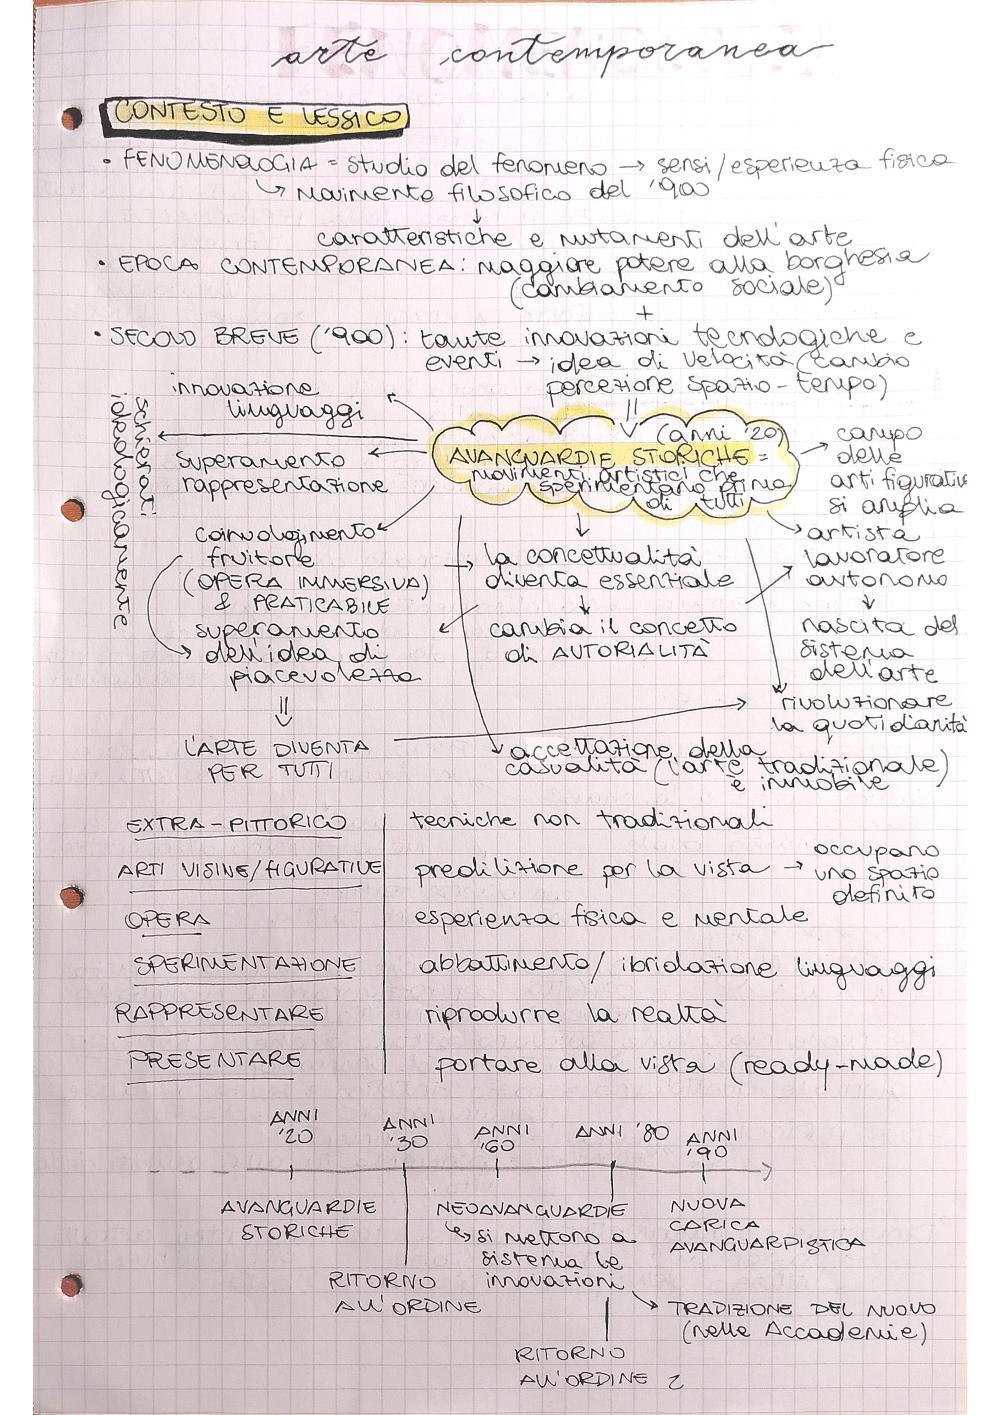 arte contemporanea
CONTESTO E LESSICO
• FENOMENOLOGIA = studio del fenomeno → sensi/esperienza fisica
↳ movimento filosofico del '900
↓
caratteristiche e mutamenti dell'arte
• EPOCA CONTEMPORANEA: maggiore potere alla borghesia
(cambiamento sociale)
+
• SECOLO BREVE ('900): tante innovazioni tecnologiche e
eventi → idea di velocità (cambio
percezione spazio-tempo)
⇓
(anni '20)
AVANGUARDIE STORICHE =
movimenti artistici che
sperimentano prima
di tutti
innovazione
linguaggi
schierati
ideologicamente
superamento
rappresentazione
coinvolgimento
fruitore
(OPERA IMMERSIVA)
& PRATICABILE
superamento
dell'idea di
piacevolezza
⇓
L'ARTE DIVENTA
PER TUTTI
→ la concettualità
diventa essenziale
↓
cambia il concetto
di AUTORIALITÀ
accettazione della
casualità (l'arte tradizionale)
è immobile
campo
delle
arti figurative
si amplia
artista
lavoratore
autonomo
↓
nascita del
sistema
dell'arte
rivoluzionare
la quotidianità
EXTRA-PITTORICO tecniche non tradizionali
ARTI VISINE/FIGURATIVE predilizione per la vista → occupano
uno spazio
definito
OPERA esperienza fisica e mentale
SPERIMENTAZIONE abbattimento/ibridazione linguaggi
RAPPRESENTARE riprodurre la realtà
PRESENTARE portare alla vista (ready-made)
ANNI
'20
ANNI
'30
ANNI
'60
ANNI '80
ANNI
'90
AVANGUARDIE
STORICHE
RITORNO
ALL'ORDINE
NEOAVANGUARDIE
↳ si mettono a
sistema le
innovazioni
NUOVA
CARICA
AVANGUARDISTICA
→ TRADIZIONE DEL NUOVO
(nelle Accademie)
RITORNO
ALL'ORDINE 2